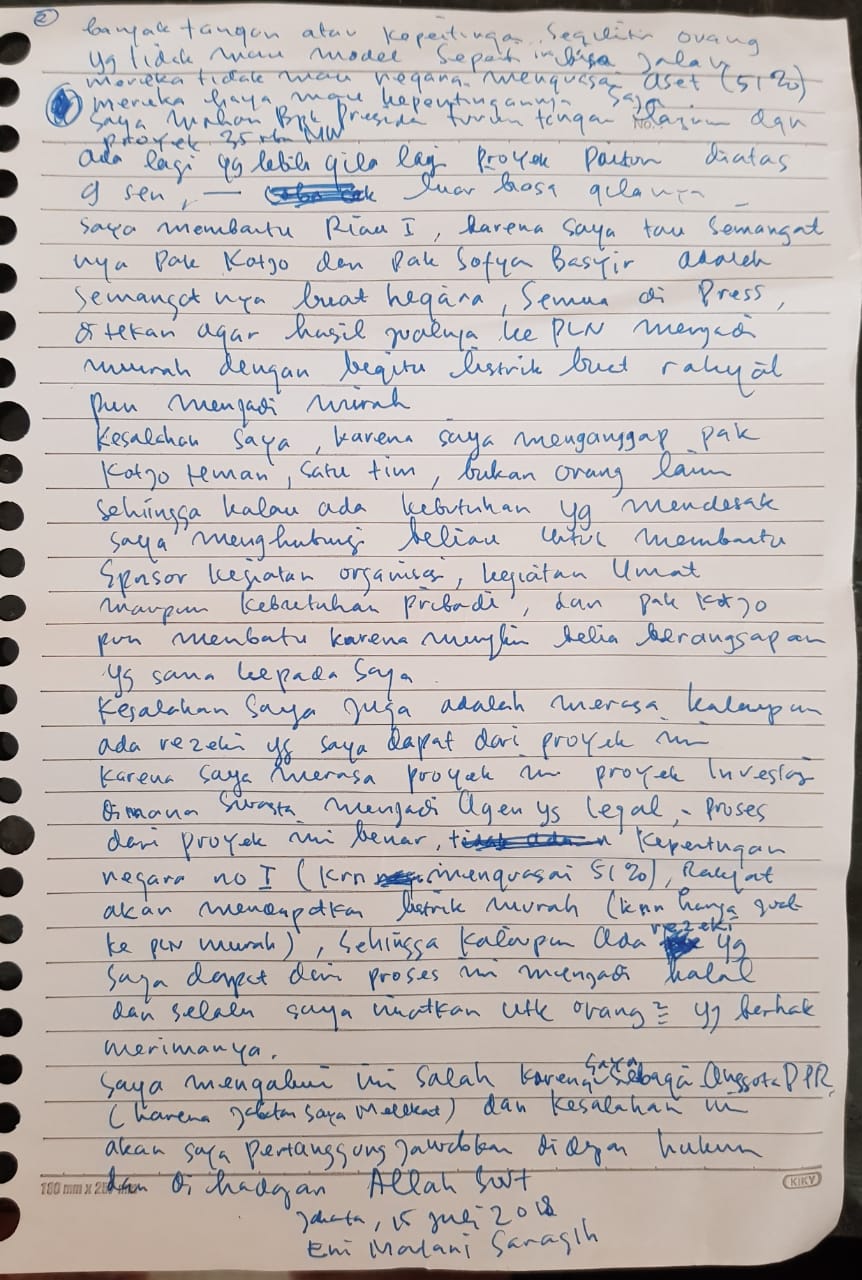 2
banyak tangan atau kepentingan segelintir orang
yg tidak mau model seperti ini bisa jalan
mereka tidak mau negara menguasai aset (51%)
mereka hanya mau kepentingannya saja
saya mohon Bpk Presiden turun tangan dgn
No.
proyek 35 ribu MW
ada lagi yg lebih gila lagi proyek Paiton diatas
9 sen, — luar biasa gilanya
saya membantu Riau I, karena saya tau semangat
nya Pak Kotjo dan Pak Sofyan Basyir adalah
semangat nya buat negara, semua di Press,
di tekan agar hasil jualnya ke PLN menjadi
murah dengan begitu listrik buat rakyat
pun menjadi murah
Kesalahan saya, karena saya menganggap pak
Kotjo teman, satu tim, bukan orang lain
sehingga kalau ada kebutuhan yg mendesak
saya menghubungi beliau untuk membantu
sponsor kegiatan organisasi, kegiatan Umat
maupun kebutuhan pribadi, dan pak Kotjo
pun membatu karena mungkin belia beranggapan
yg sama kepada saya.
Kesalahan saya juga adalah merasa kalaupun
ada rezeki yg saya dapat dari proyek ini
karena saya merasa proyek ini proyek Investasi
dimana swasta menjadi Agen yg legal, - proses
dari proyek ini benar, kepentingan
negara no I (krn menguasai 51%), Rakyat
akan mendapatkan listrik murah (krn harga jual
ke PLN murah), sehingga kalaupun ada rezeki yg
saya dapat dari proses ini menjadi halal
dan selalu saya niatkan utk orang2 yg berhak
merimanya.
saya mengakui ini salah karena saya sebagai Anggota DPR
(karena jabatan saya melekat) dan kesalahan ini
akan saya pertanggung jawabkan didepan hukum
dan di hadapan Allah SWT
180 mm x 2
KIKY
Jakarta, 15 Juli 2018
Eni Maulani Saragih